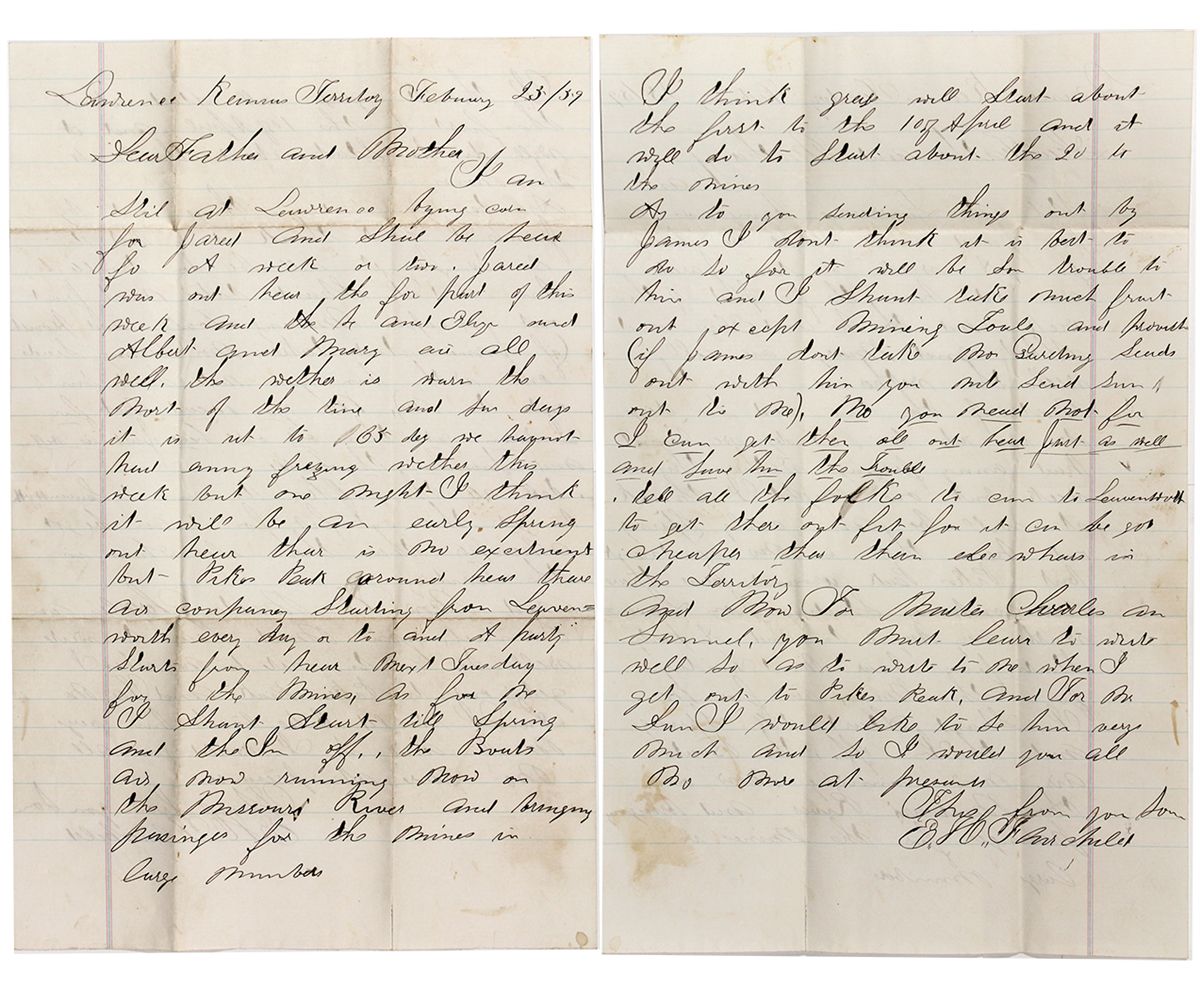 Lawrence Kansas Territory Febuary 23/59
Dear Father and Mother
I am
Stil at Lawrence bying corn
for Jared and Shal be hear
fo A week or two. Jared
was out hear the for part of this
week and the he and Eliza and
Albert and Mary air all
well, the wether is warm the
Most of the time and sum days
it is ut to 65 deg we haynot
had anny frezing wether this
week but one Night I think
it will be an early Spring
out hear thear is No excitment
but Pikes Peak around hear thare
air company Starting from Leaven=
worth every day or to and A party
Starts from hear Next Tuesday
for the Mines, as for Me
I Shant Start till Spring
and the off, the Boats
air, Now running Now on
the Missouri River and bringing
pasinges for the Mines in
large Numbers
I think grass will Start about
the first to the 10 of April and it
will do to Start about the 20 to
the Mines
As to you sending things out by
James I dont think it is best to
do so for it will be Sum trouble to
him and I Shant take Much
out except Mining Touls, and
(if James dont take No Garding Seads
out with him you Mite Send Sum,
out to Me), No you Nead Not for
I can get them all out hear Just as well
and save him the Trouble
, tell all the folks to cum to Leavenworth
to get there out fit for it can be got
cheaper thare than elce whars in
the Territory
And Now For Master Charles an
Samuel, you Must learn to write
well so as to write to Me when I
get out to Pikes Peak, and For
I would like to se him very
Much and so I would you all
No More at presant
This from you Son
E. H. Fairchild